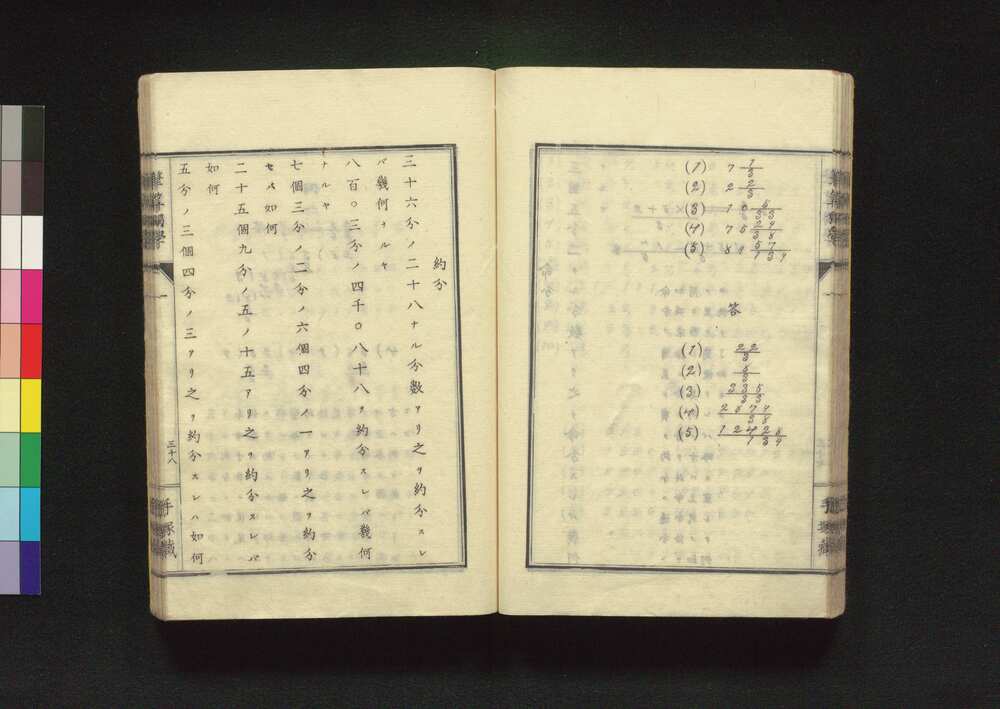 (1) 7 1/3
(2) 2 2/3
(3) 10 5/33
(4) 75 29/38
(5) 89 57/139
答
(1) 22/3
(2) 8/3
(3) 335/33
(4) 2879/38
(5) 12428/139
約分
三十六分ノ二十八ナル分數アリ之ヲ約分スレ
バ幾何ナルヤ
八百〇三分ノ四千〇八十八ヲ約分スレバ幾何
ナルヤ
七個三分ノ二分ノ六個四分ノ一アリ之ヲ約分
セバ如何
二十五個九分ノ五ノ十五アリ之ヲ約分スレバ
如何
五分ノ三個四分ノ三アリ之ヲ約分スレハ如何
三十八
手塚藏